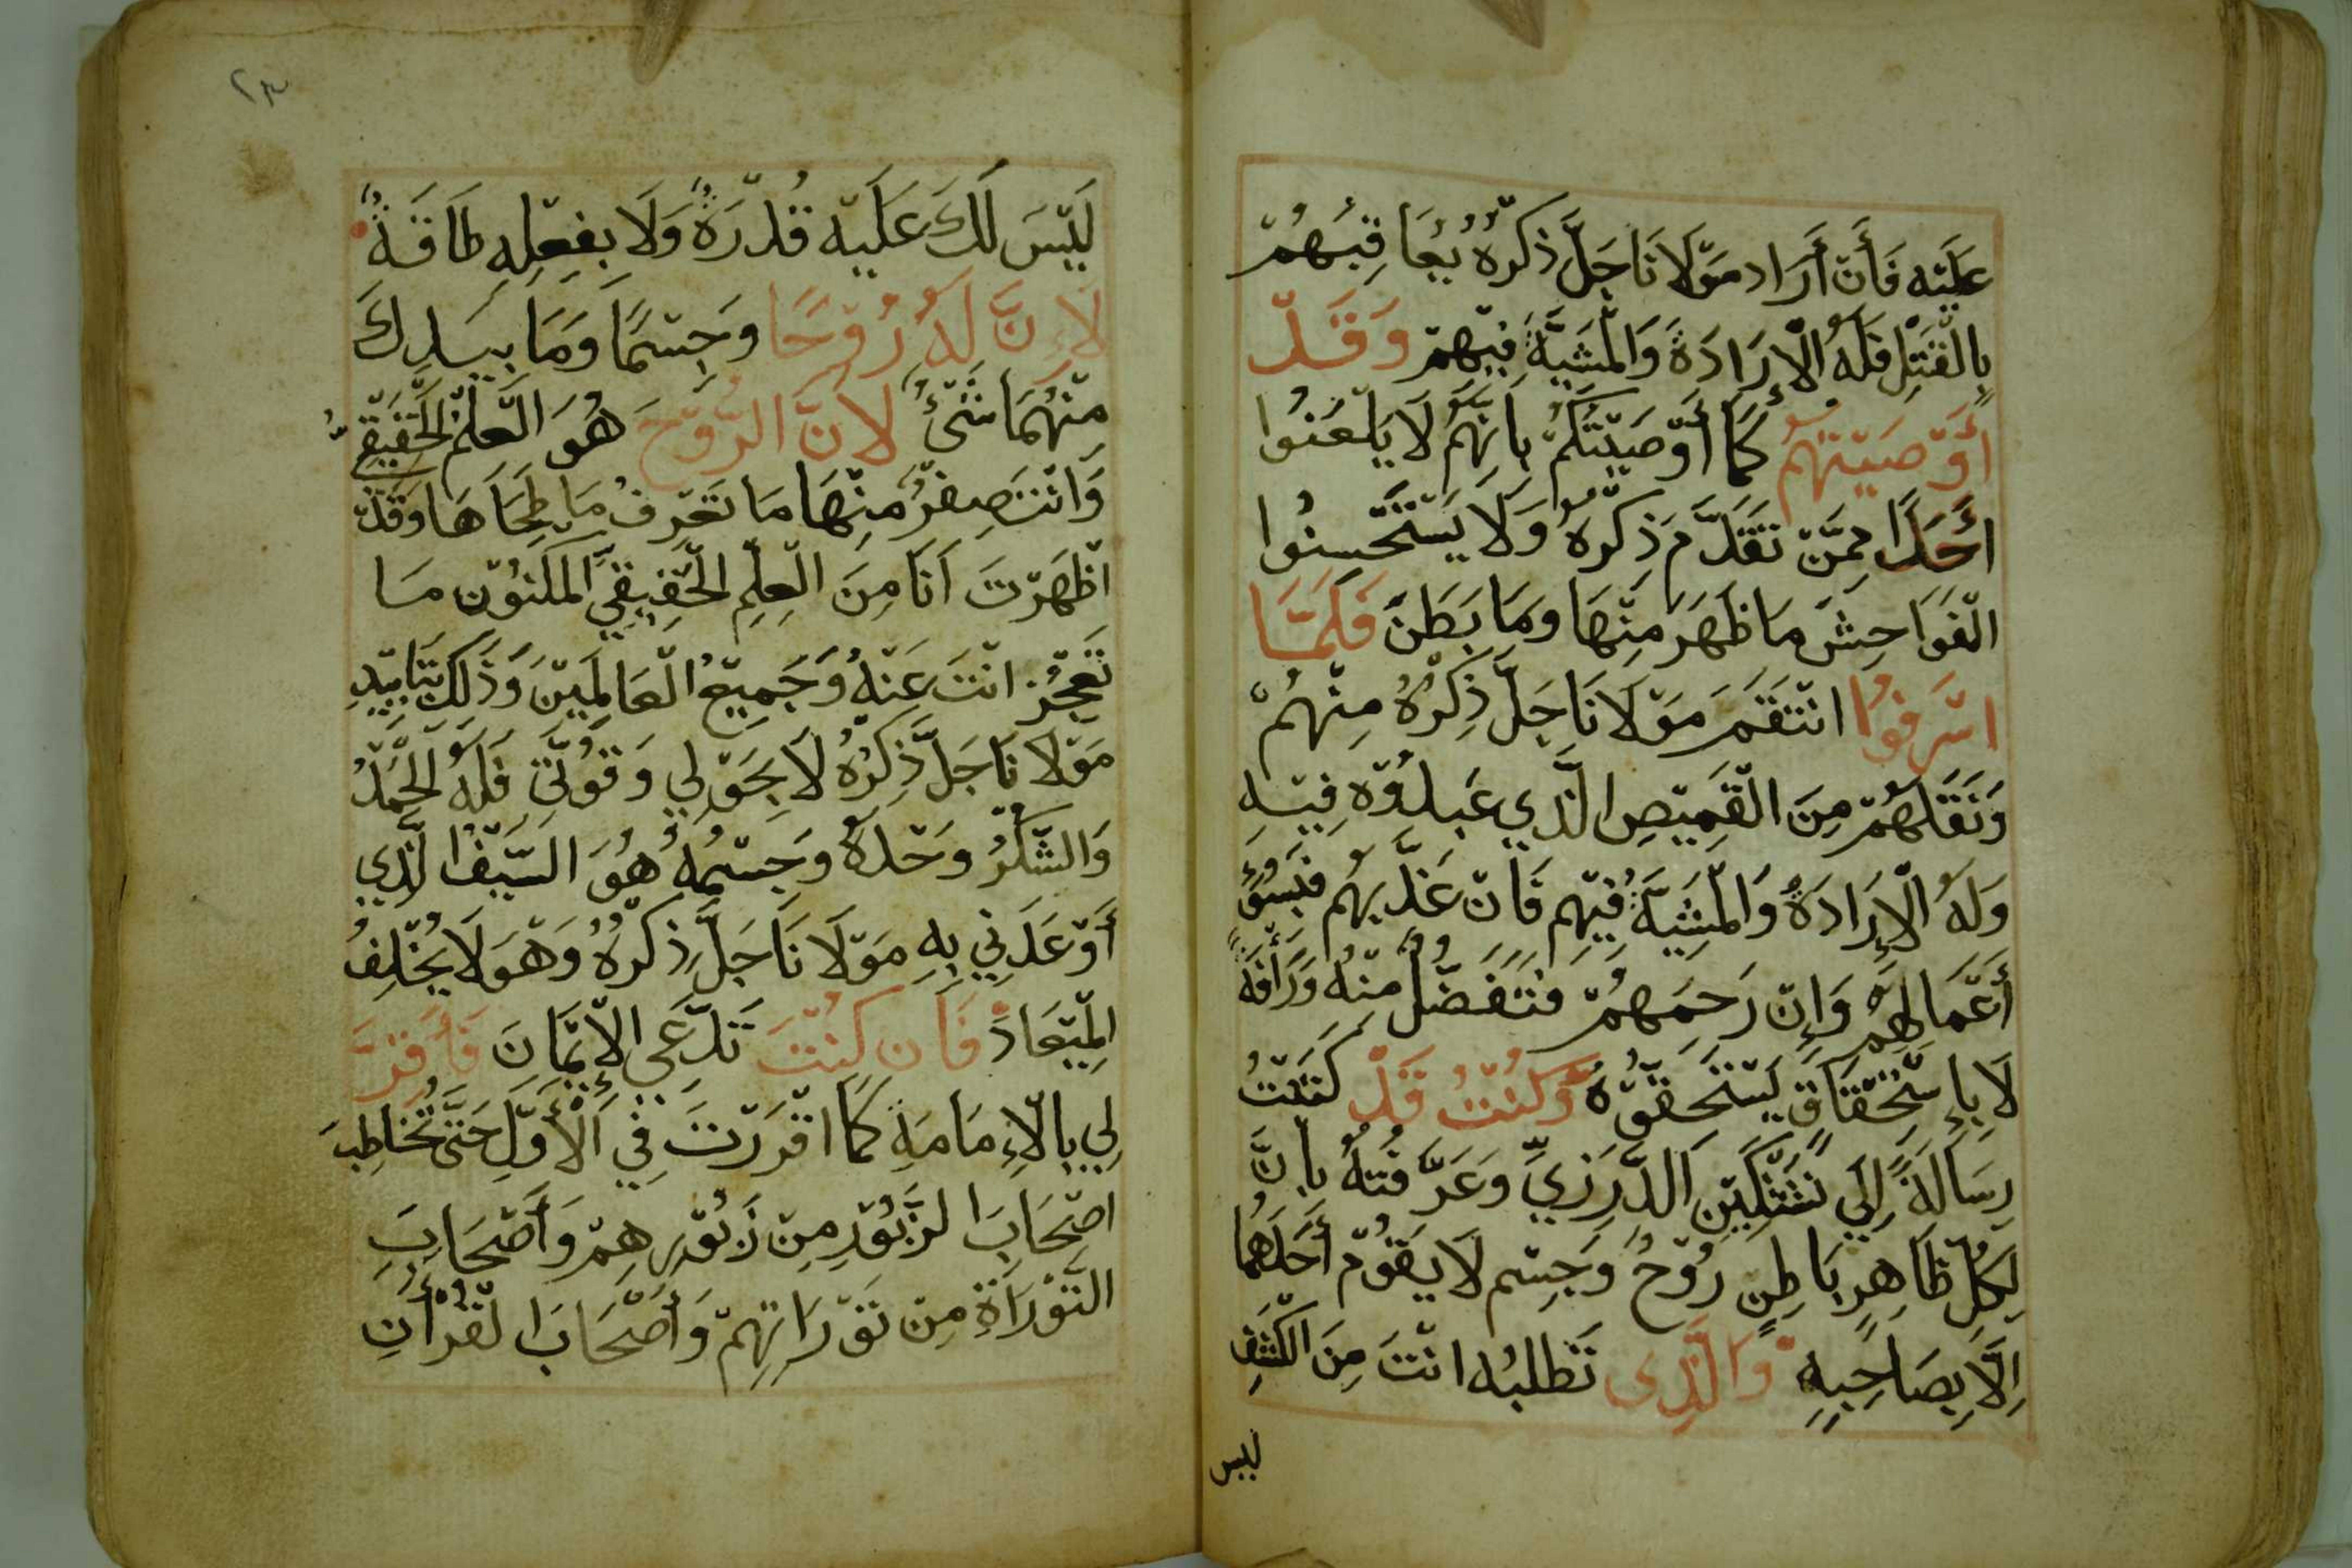 عَلَيْه فَأَنْ أَرَاد مَوْلَانَا جَلَّ ذِكْرُهُ يُعَاقِبَهُمْ
بِالْقَتْلِ فَلَهُ الْإِرَادَةُ وَالْمَشِيَّةُ فِيْهِمْ وَقَدْ
أَوْصَيْتَهُمْ كَمَا أَوْصَيْتُكُمْ بِأَنَّهُمْ لَا يَلْعَنُوا
أَحَدًا مِمَّنْ تَقَدَّمَ ذِكْرُهُ وَلَا يَسْتَحْسِنُوا
الْفَوَاحِشَ مَا ظَهَرَ مِنْهَا وَمَا بَطَنَ فَلَمَّا
اسْرَفُوا انْتَقَمَ مَوْلَانَا جَلَّ ذِكْرُهُ مِنْهُمْ
وَنَقَلَهُمْ مِنَ الْقَمِيْصِ الَّذِي عَبَدُوْهُ فِيْهِ
وَلَهُ الْإِرَادَةُ وَالْمَشِيَّةُ فِيْهِم فَأَنْ عَذَّبَهُم فَبِسُوْءِ
أَعْمَالِهِمْ وَإِنْ رَحِمَهُمْ فَتَفَضُّلٌ مِنْهُ وَرَأْفَةً
لَا بِإِسْتِحْقَاقٍ يَسْتَحِقُّوْهُ وَكُنْتُ قَدْ كَتَبْتُ
رِسَالَةً إِلَى نَشْتَكِيْنَ الدَّرَزِيِّ وَعَرَّفْتُهُ بِأَنَّ
لِكُلِّ ظَاهِرٍ بَاطِنٍ رُوْحُ وَجِسْم لَا يَقُوْمُ أَحَدُهُمَا
إِلَّا بِصَاحِبِهِ وَالَّذِي تَطْلُبُه انْتَ مِنَ الْكَشْفِ
ليس
٢٣
لَيْسَ لَكَ عَلَيْه قُدْرَةٌ وَلَا بِفِعْلِهِ طَاقَةٌ
لِإِنَّ لَهُ رُوْحًا وَجِسْمًا وَمَا بِيَدِكَ
مِنْهُمَا شَيْءٌ لِأَنَّ الرُّوْحَ هُوَ الْعِلْمُ الْحَقِيْقِيُّ
وَانْتَ صِفْرٌ مِنْهَا مَا تَعْرِفُ مَا طَحَاهَا وَقَدْ
اظْهَرْتَ أَنَا مِنَ الْعِلْمِ الْحَقِيْقِيِّ الْمَكْنُوْنِ مَا
تَعْجِزُ انْتَ عَنْهُ وَجَمِيْعُ الْعَالَمِيْنَ وَذَلِكَ بِتَايِيْدِ
مَوْلَانَا جَلَّ ذِكْرُهُ لَا بِحَوْلِي وَقُوَّتِي فَلَهُ الْحَمْدُ
وَالشُّكْرُ وَحْدَهُ وَجِسْمُهُ هُوَ السَّيْفُ الَّذِي
أَوْعَدَنِي بِهِ مَوْلَانَا جَلَّ ذِكْرُهُ وَهْوَ لَا يُخْلِفُ
الْمِيْعَادَ فَأَن كُنْتَ تَدَّعَي الْإِيْمَانَ فَأَقِرَّ
لِي بِالْإِمَامَةِ كَمَا اقْرَرْتَ فِي الْأَوَّلِ حَتَّى تُخَاطِبَ
اصْحَابَ الزَّبُوْرِ مِنْ زَبُوْرِهِمْ وَأَصْحَابَ
التَّوْرَاةِ مِنْ تَوْرَاتِهِمْ وَأَصْحَابَ الْقُرْأَنِ